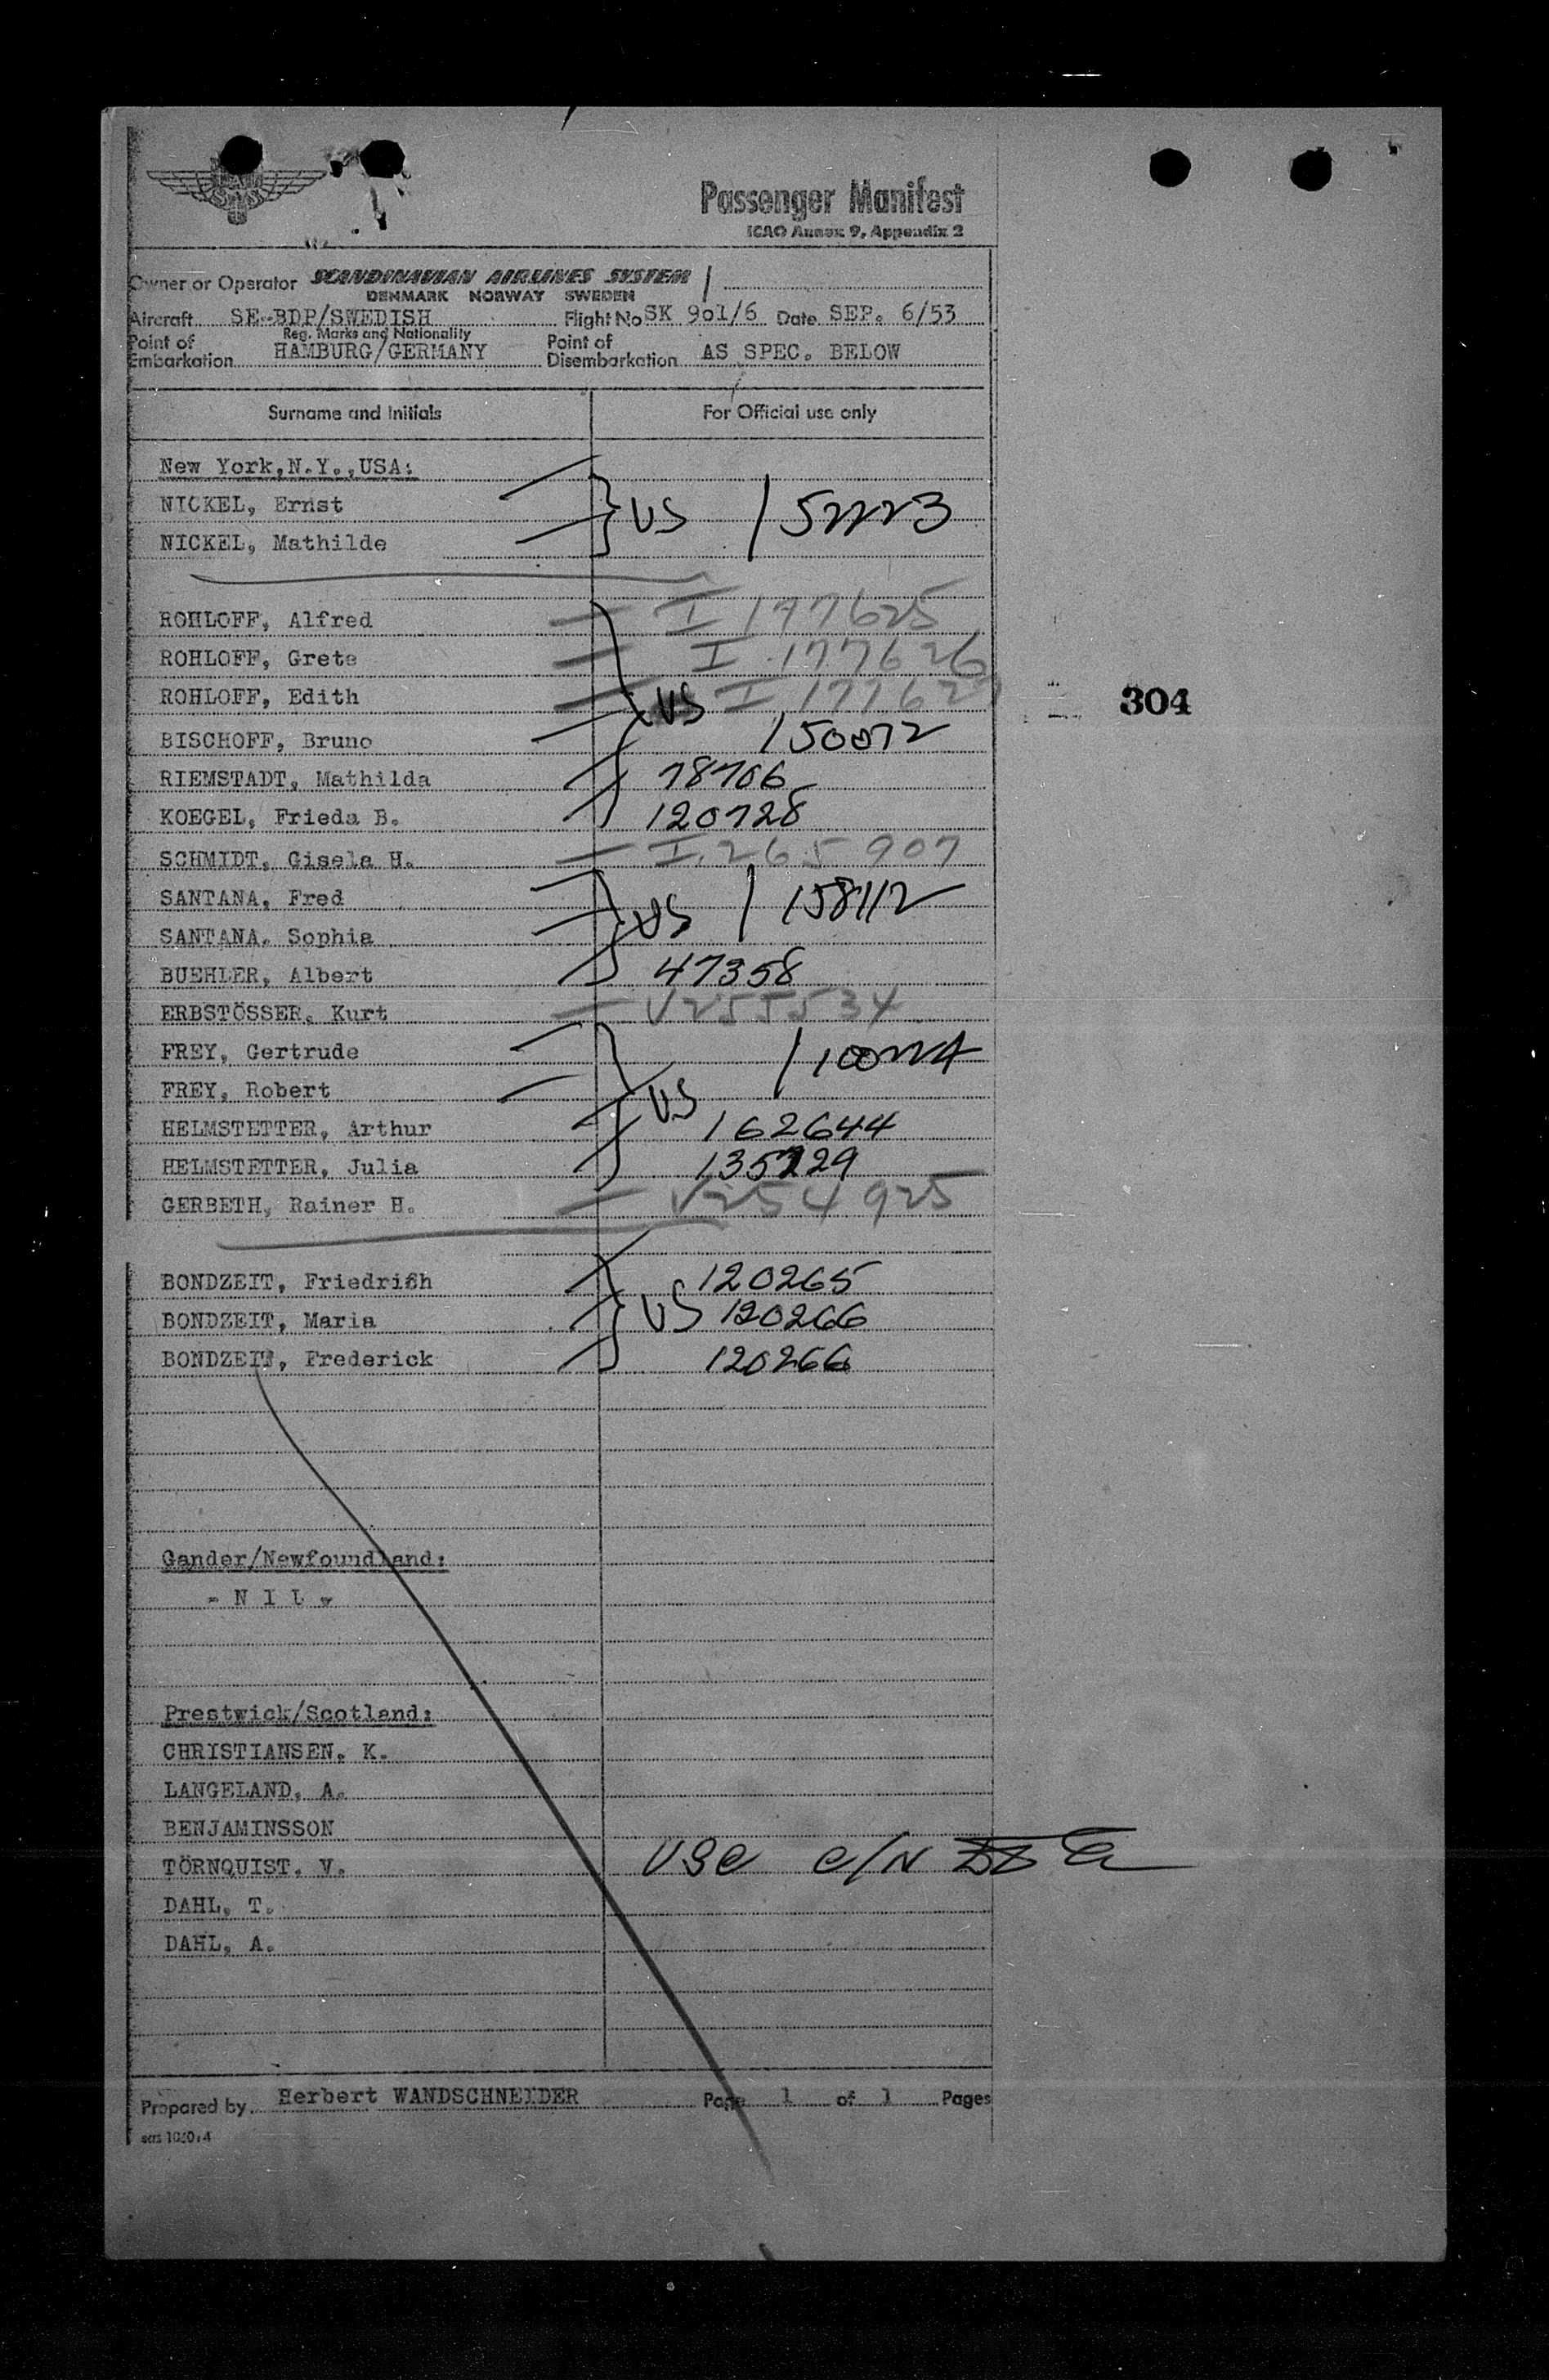 Passenger Manifest
ICAO Annex 9, Appendix 2
Owner or Operator SCANDINAVIAN AIRLINES SYSTEM
DENMARK NORWAY SWEDEN
Aircraft SE-BDP/SWEDISH Flight No SK 901/6 Date SEP. 6/53
Reg. Marks and Nationality
Point of Embarkation HAMBURG/GERMANY Point of Disembarkation AS SPEC. BELOW
Surname and Initials For Official use only
New York,N.Y.,USA:
NICKEL, Ernst
US
NICKEL, Mathilde
ROHLOFF, Alfred I 177625
ROHLOFF, Grete I 177626
ROHLOFF, Edith US I 177627
304
BISCHOFF, Bruno 150072
RIEMSTADT, Mathilda 78706
KOEGEL, Frieda B. 120728
SCHMIDT, Gisela H. I 265907
SANTANA, Fred US 158112
SANTANA, Sophia
BUEHLER, Albert 47358
ERBSTÖSSER, Kurt V255534
FREY, Gertrude
FREY, Robert US
HELMSTETTER, Arthur 162644
HELMSTETTER, Julia
GERBETH, Rainer H. V254925
BONDZEIT, Friedrich 120265
BONDZEIT, Maria US 120266
BONDZEIT, Frederick 120266
Gander/Newfoundland:
- N I L -
Prestwick/Scotland:
CHRISTIANSEN, K.
LANGELAND, A.
BENJAMINSSON
TÖRNQUIST, V. USC C/N
DAHL, T.
DAHL, A.
Prepared by Herbert WANDSCHNEIDER Page 1 of 1 Pages